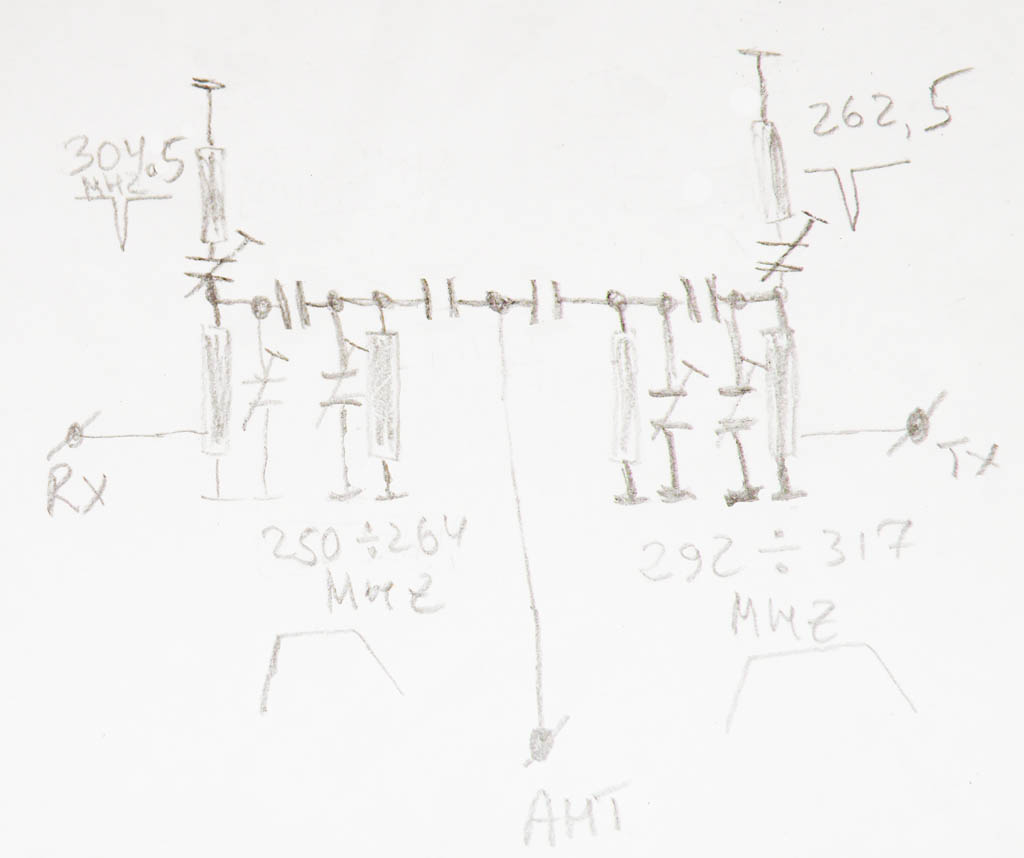 304.5
MHZ
262,5
Rx
Tx
250 ÷ 264
MHZ
292 ÷ 317
MHZ
АНТ